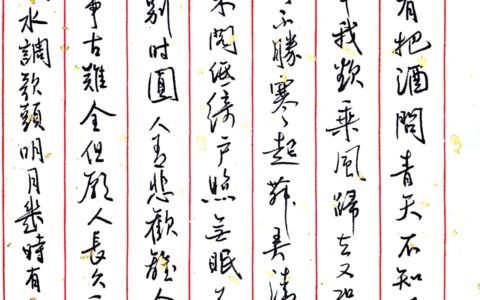 有把酒問青天不知
我欲乘風歸去又恐
不勝寒起舞弄清
朱閣低綺戶照無眠
別時圓人有悲歡離
事古難全但願人長久
水調歌頭明月幾時有